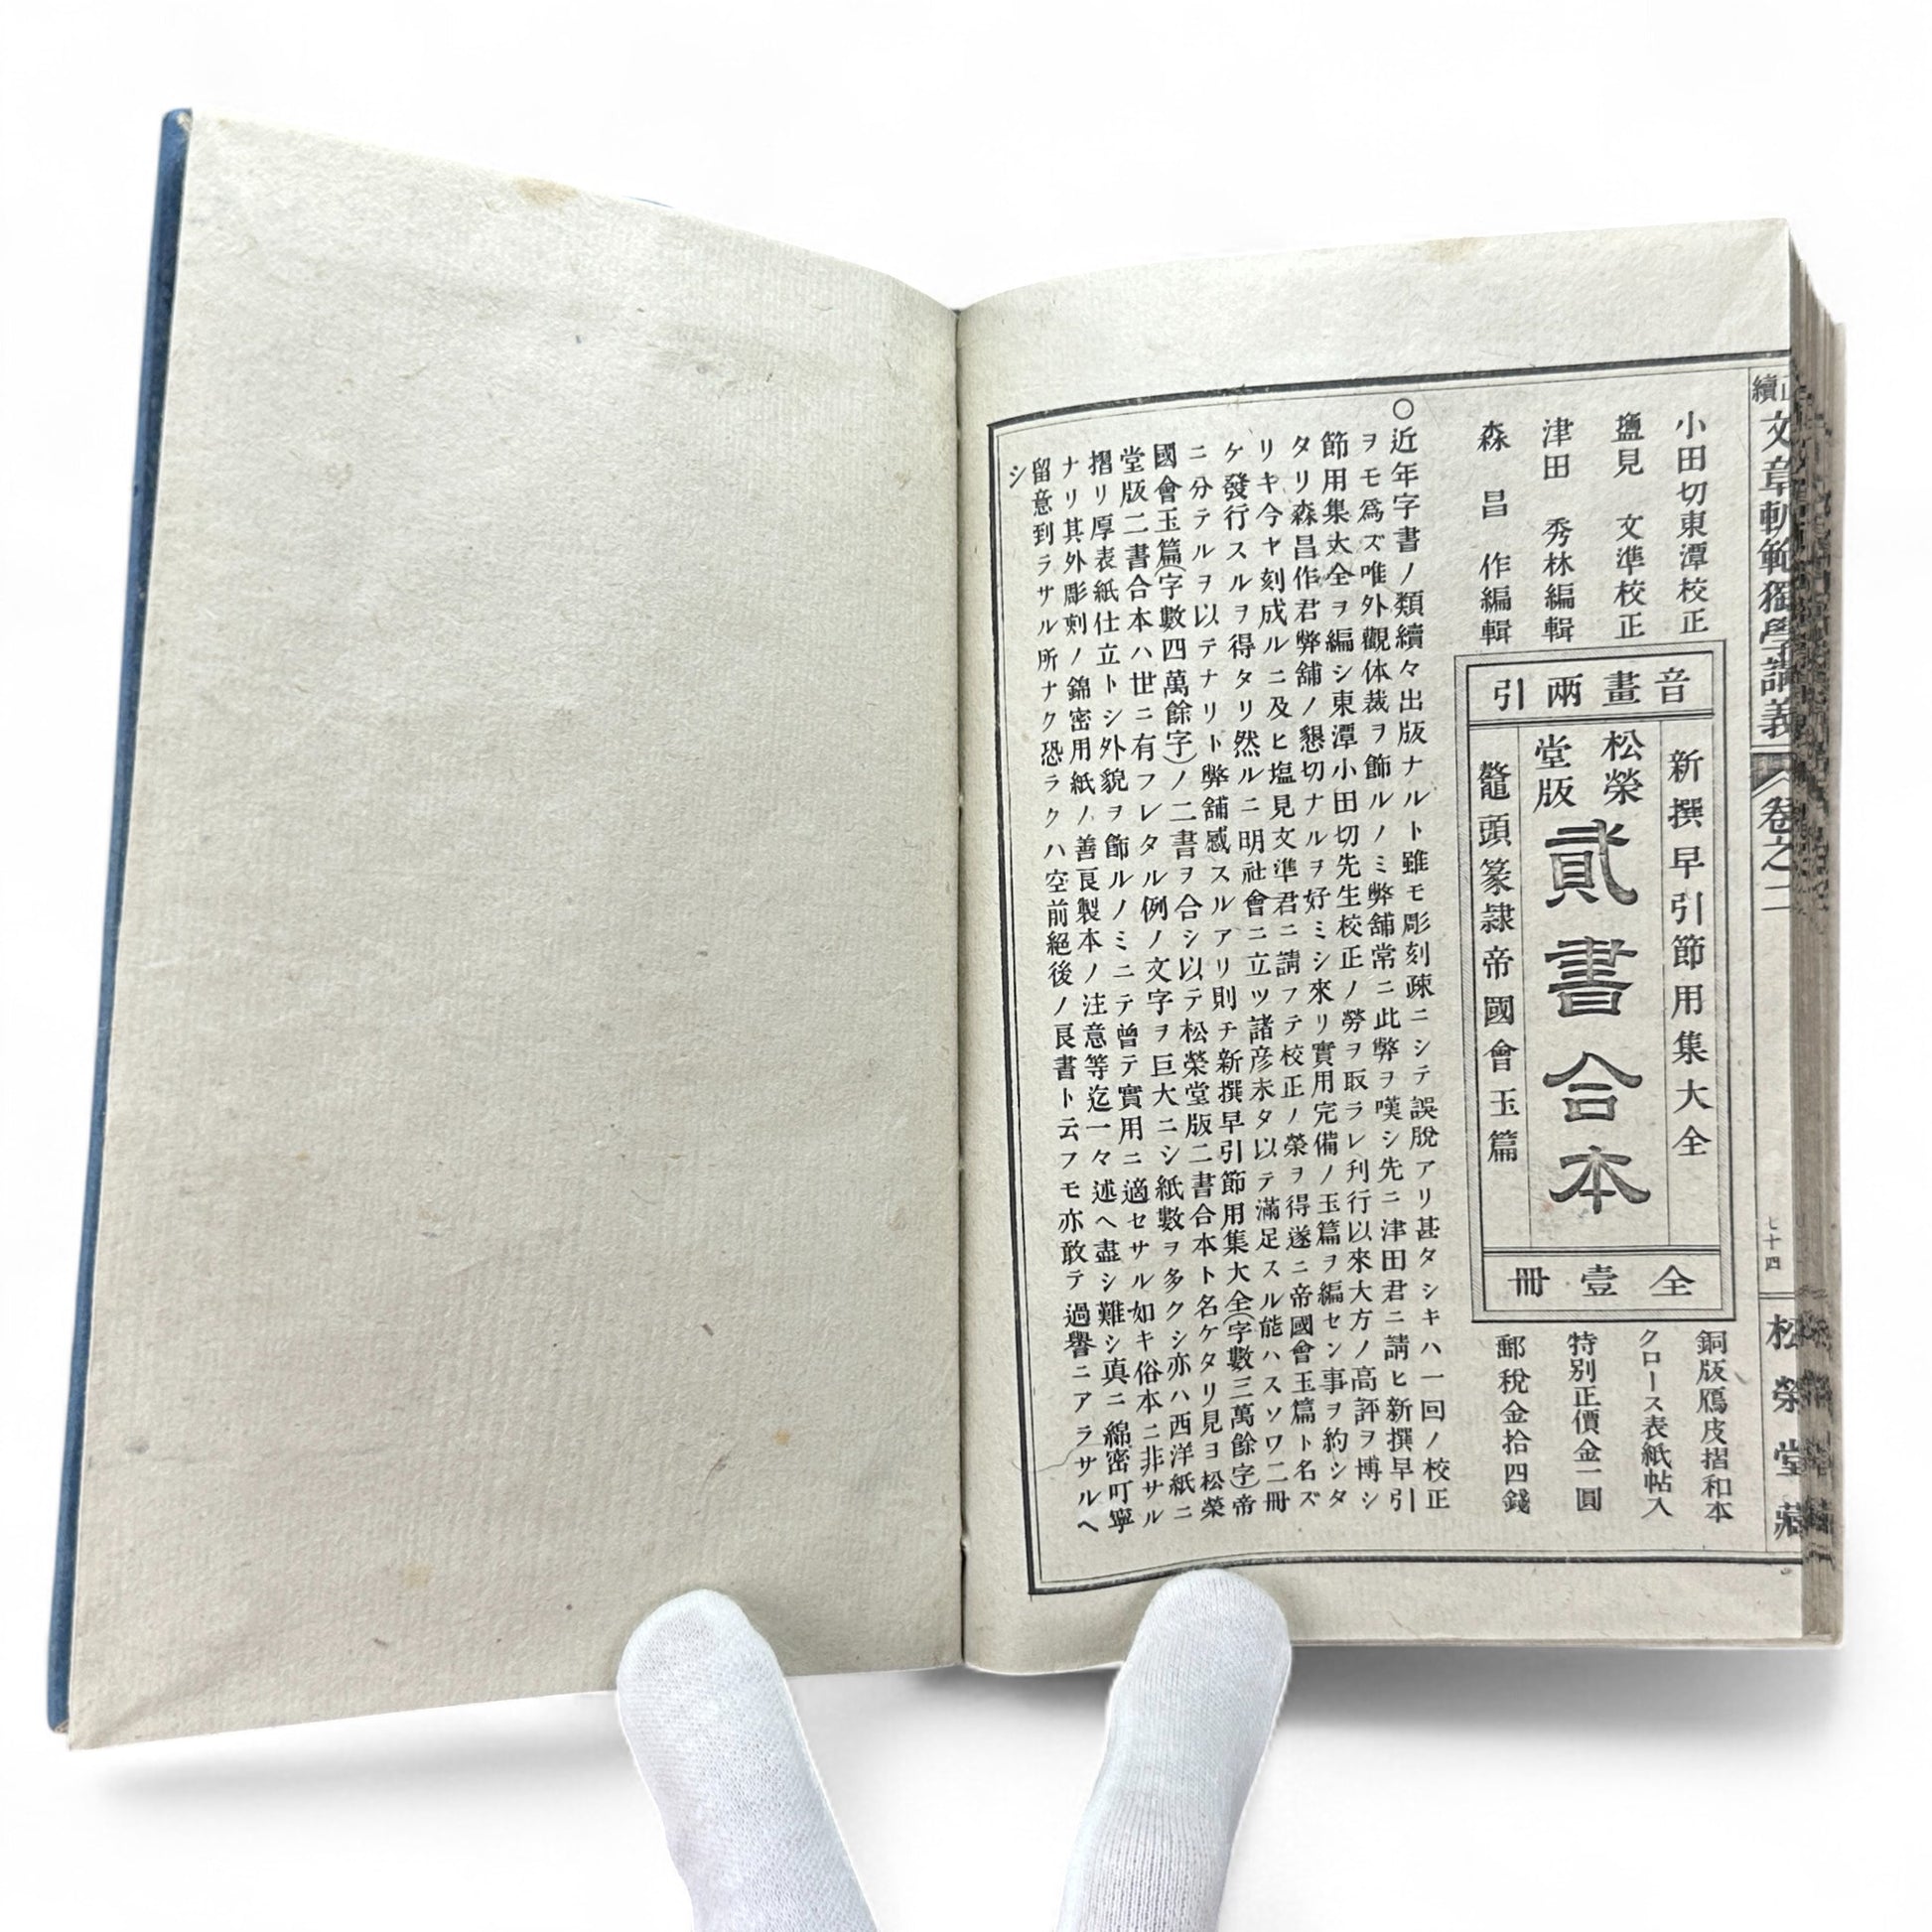 正續文章軌範獨學講義
卷之二
七十四
松榮堂藏
小田切東潭校正
鹽見文準校正
津田秀林編輯
森昌作編輯
音畫兩引
新撰早引節用集大全
松榮堂版
貳書合本
鼇頭篆隷帝國會玉篇
全壹冊
銅版鴈皮摺和本
クロース表紙帖入
特別正價金一圓
郵稅金拾四錢
○近年字書ノ類續々出版ナルト雖モ彫刻疎ニシテ誤脫アリ甚タシキハ一回ノ校正
ヲモ爲ズ唯外觀体裁ヲ飾ルノミ弊舖常ニ此弊ヲ嘆シ先ニ津田君ニ請ヒ新撰早引
節用集大全ヲ編シ東潭小田切先生校正ノ勞ヲ取ラレ刋行以來大方ノ高評ヲ博シ
タリ森昌作君弊舖ノ懇切ナルヲ好ミシ來リ實用完備ノ玉篇ヲ編セン事ヲ約シタ
リキ今ヤ刻成ルニ及ヒ塩見文準君ニ請フテ校正ノ榮ヲ得遂ニ帝國會玉篇ト名ズ
ケ發行スルヲ得タリ然ルニ明社會ニ立ツ諸彦未タ以テ滿足スル能ハスソワ二冊
ニ分テルヲ以テナリト弊舖感スルアリ則チ新撰早引節用集大全(字數三萬餘字)帝
國會玉篇(字數四萬餘字)ノ二書ヲ合シ以テ松榮堂版二書合本ト名ケタリ見ヨ松榮
堂版二書合本ハ世ニ有フレタル例ノ文字ヲ巨大ニシ紙數ヲ多クシ亦ハ西洋紙ニ
摺リ厚表紙仕立トシ外貌ヲ飾ルノミニテ曾テ實用ニ適セサル如キ俗本ニ非サル
ナリ其外彫刻ノ錦密用紙ノ善良製本ノ注意等迄一々述ヘ盡シ難シ真ニ綿密叮寧
留意到ラサル所ナク恐ラクハ空前絕後ノ良書ト云フモ亦敢テ過譽ニアラサルヘ
シ